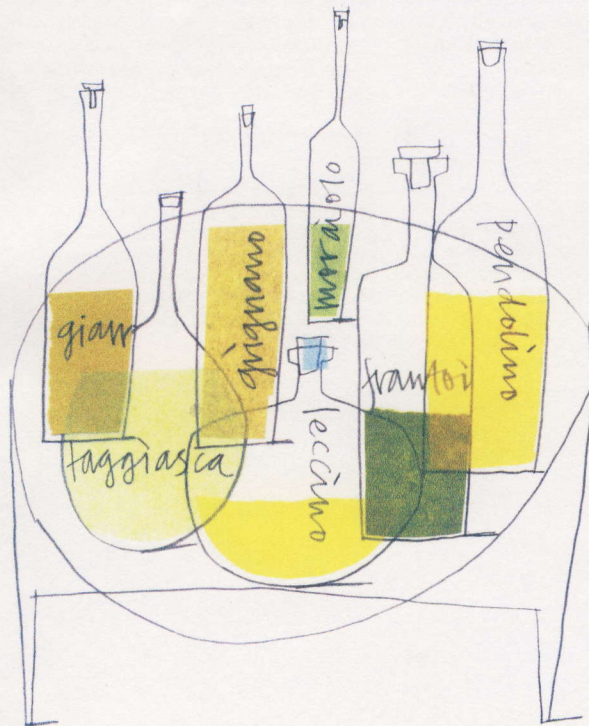 giarr
taggiasca
grignano
moraiolo
leccino
frantoi
pendolino